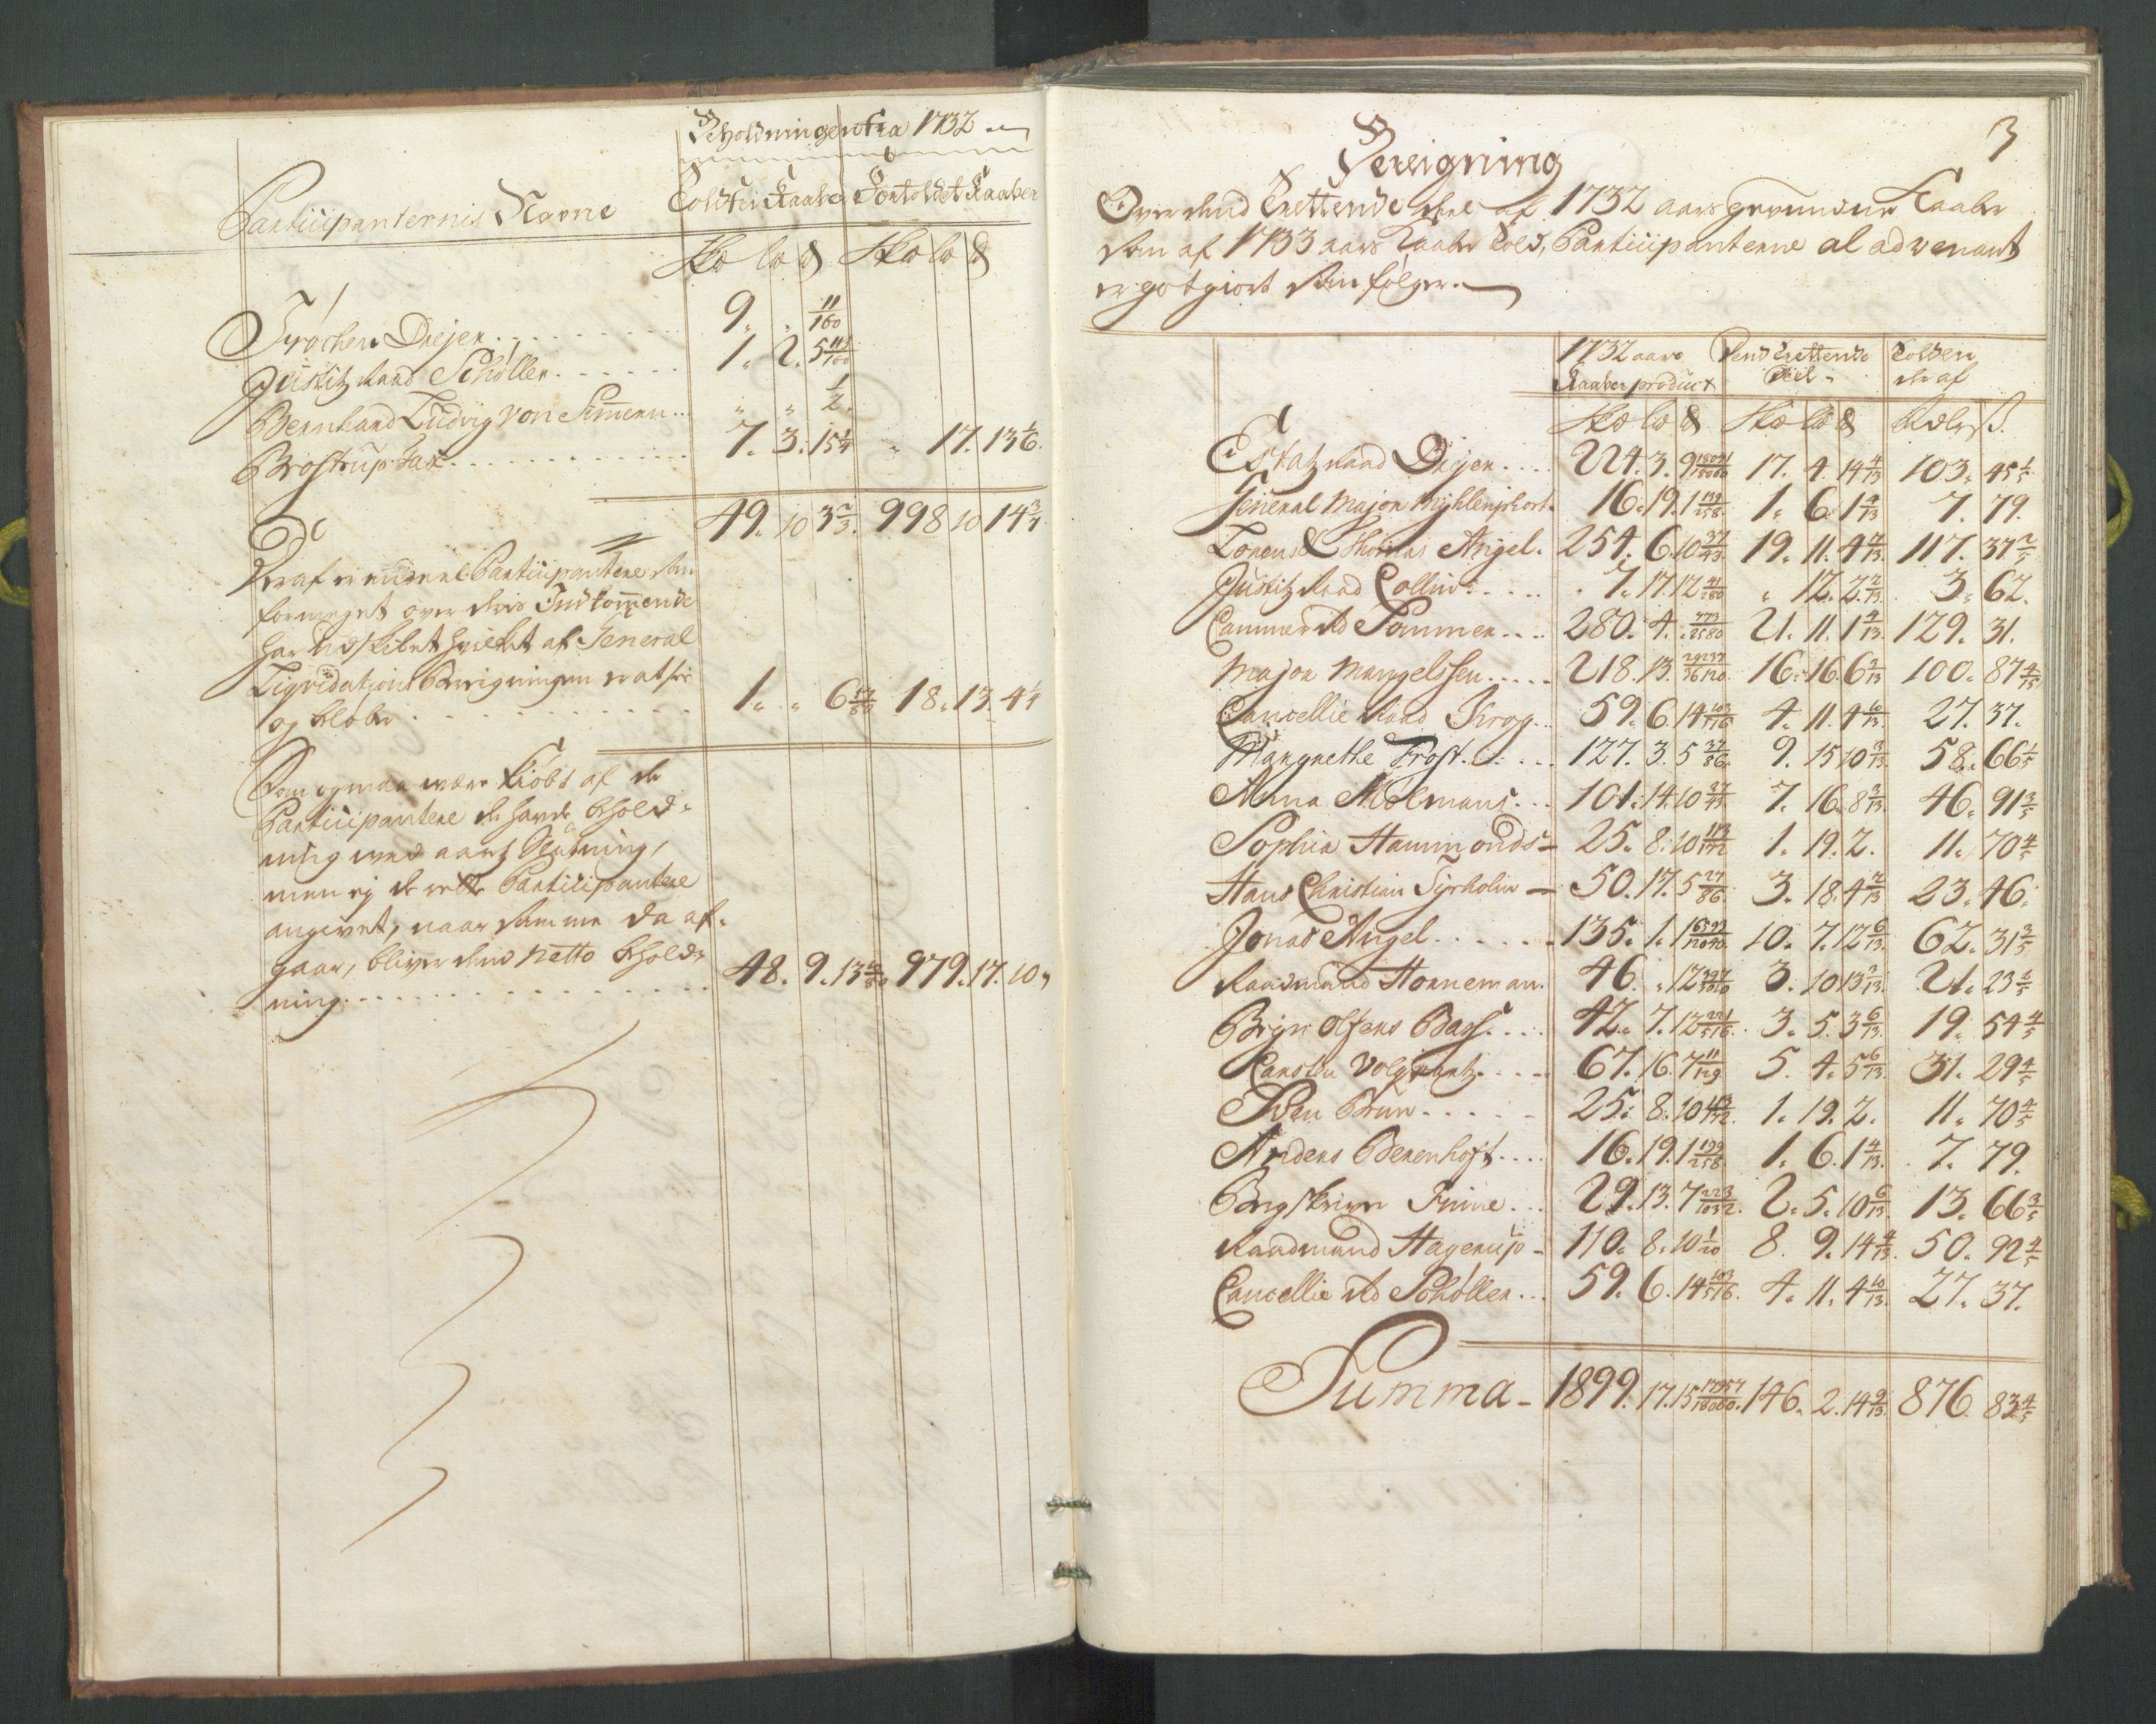 Beholdningen fra 1732
Participanternis Navne
Toldfri Kaaber Fortoldet Kaaber
Skæ læ ℔ Skæ læ ℔
Frŭchen Drejer 9. „ 11/160
Justitz Raad Schøller 1. 2. 5 119/160
Bernhard Ludvig von Simmern „ „ 1/2
Brostrup Sax 7. 3. 15 1/4 „ 17. 13 1/6
49. 10 3 2/3. 998 10 14 3/4
Deraf er endeel Participantere som
formeget over deris Indkommende
har udskibet hvilket af General
Liqvidations Beregningen er at see
og beløber 1. „ 6 18 13. 4 1/4
Som og maa være kiøbt af de
Participantere de hafde behold-
ning med aars Slutning,
men ej de rette Participantere
angivet, naar samme da af-
gaar, bliver dend netto behold-
ning 48. 9. 13 979. 17. 10
3
Beregning
Over dend Trettende deel af 1732 aars gevundne Kaaber
som af 1733 aars Kaaber Told, Participanterne al advenant
er godtgiort som følger.
1732 aars Kaaber product
Dend Trettende Deel
Tolden der af
Skæ læ ℔ Skæ læ ℔ Rdlr ß.
Estatz Raad Drejer 224. 3. 9 17. 4. 14 4/13 103. 45 1/5
General Major Mÿhlenphort 16. 19. 1 139/258 1. 6 1 4/13 7. 79.
Lorens & Thomas Angel. 254. 6. 10 37/43 19. 11. 4 4/13 117. 37 2/5
Justitz Raad Collin 7. 17. 12 41/180 „ 12. 2 2/13 3. 62.
Cammer Rd Sommer 280. 4. „ 773/2580 21. 11. 1 4/13 129. 31.
Major Mangelssen 218. 13. 29237/36120 16. 16. 6 2/13 100. 87 4/5
Cancellie Raad Krog 59. 6. 14 103/516 4. 11. 4 10/13 27. 37.
Margrethe Frost 127. 3. 5 37/86 9. 15 10 3/13 58. 66 1/5
Anna Molmans 101. 14. 10 37/43 7. 16. 8 3/13 46. 91 3/5
Sophia Hammonds 25. 8. 10 113/172 1. 19. 2. 11. 70 4/5
Hans Christian Tyrholm 50. 17. 5 27/86 3. 18. 4 2/13 23. 46.
Jonas Angel 135. 1. 1 10. 7. 12 6/13 62. 31 3/5
Raadmand Horneman 46. „ 12 3. 10 13 2/13 21. 23 1/5
Brÿn Olfens Barss 42. 7. 12 221/516 3. 5. 3 6/13 19. 54 4/5
Carsten Volqvartz 67. 16. 7 11/129 5. 4. 5 6/13 31. 29 4/5
Sven Brun 25. 8. 10 113/172 1. 19. 2. 11. 70 4/5
Anders Berenhoft 16. 19. 1 139/258 1. 6. 1 4/13 7. 79.
Bergskriver Finne 29. 13. 7 223/1032 2. 5. 10 6/13 13. 66 3/5
Raadmand Hagerup 110. 8. 10 1/20 8. 9. 14 4/13 50. 92 4/5
Cancellie Rd Schøller 59. 6. 14 103/516 4. 11. 4 10/13 27. 37.
Summa 1899. 17. 15 17957/18060. 146. 2. 14 9/13 876 83 4/5